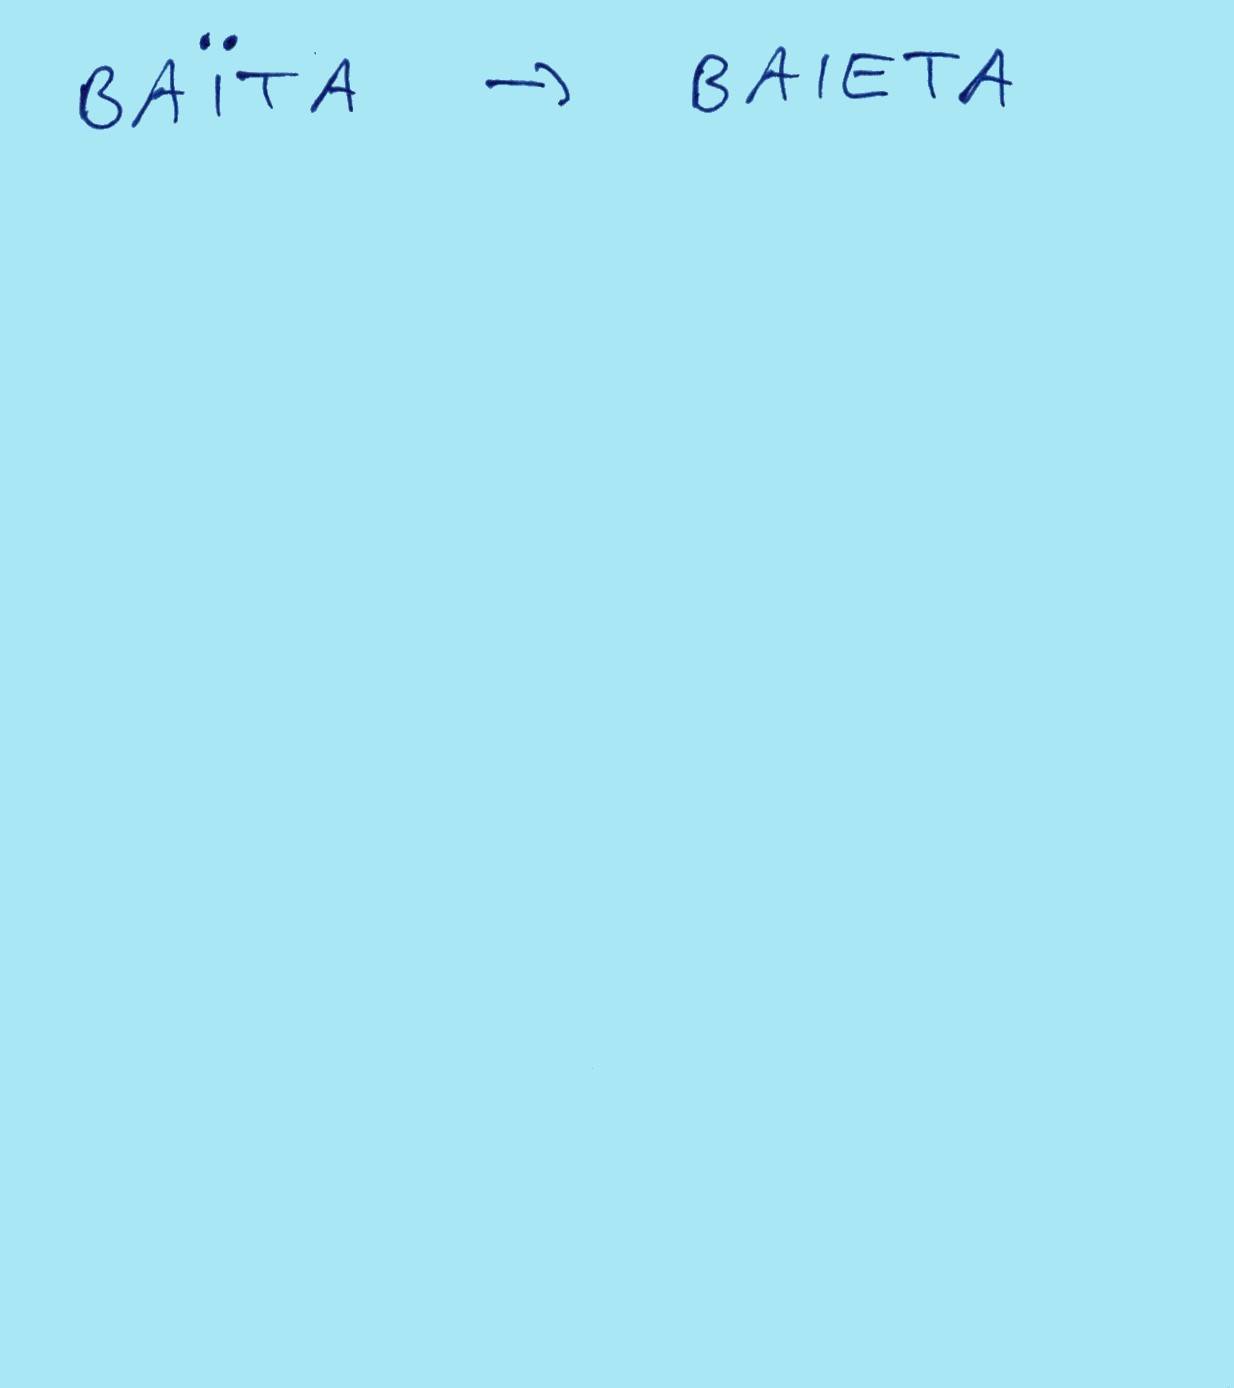 BAÏTA → BAIETA